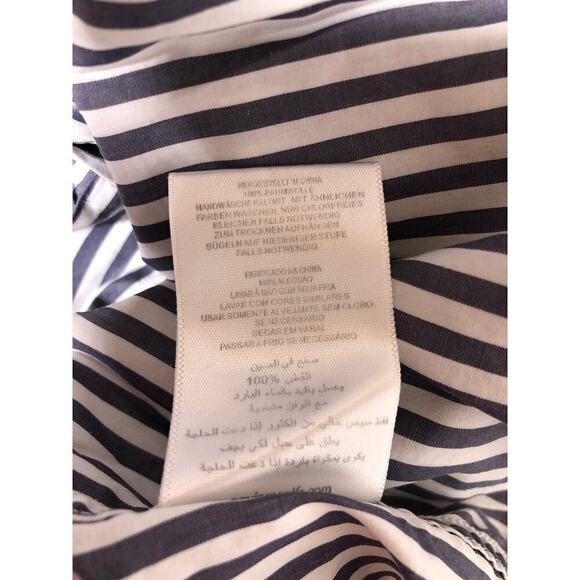 HERGESTELLT IN CHINA
100% BAUMWOLLE
HANDWÄSCHE KALT MIT ÄHNLICHEN
FARBEN WASCHEN NUR CHLORFREIES
BLEICHEN FALLS NOTWENDIG
ZUM TROCKNEN AUFHÄNGEN
BÜGELN AUF NIEDERIGER STUFE
FALLS NOTWENDIG
FABRICADO NA CHINA
100% ALGODÃO
LAVAR À MÃO COM ÁGUA FRIA
LAVAR COM CORES SIMILARES
USAR SOMENTE ALVEJANTE SEM CLORO
SE NECESSÁRIO
SECAR EM VARAL
PASSAR A FRIO SE NECESSÁRIO
صنع في الصين
100% القطن
يغسل باليد بالماء البارد
مع ألوان متشابهة
فقط مبيض خالي من الكلور إذا دعت الحاجة
يعلق على حبل لكي يجف
يكوى بمكواة باردة إذا دعت الحاجة